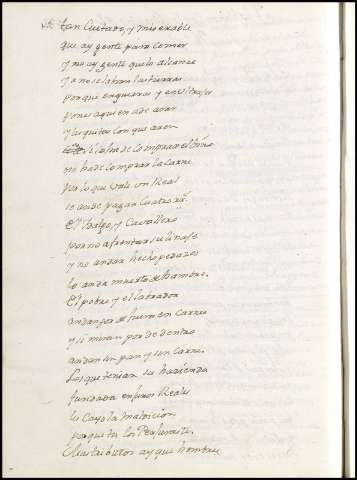 tan Cuitado, y miserable
que ay gente para comer
y no ay gente que lo alcance
y a no se labran las tierras
porque en guerras y en Ultrajes
pones a quien a de arar
y las quitas con que aren
de comprar el
no ha de comprar la Carne
por lo que Vale un Real
se an de pagar Cuatro
El Hidalgo, y Cavallero
por no afrentar su linaje
y no andar hecho pedazos
lo anda muerto de hambre.
El pobre y el labrador
andan por de fuera en Carnes
y si miran por de dentro
andan sin pan y sin Carne.
Los que tenian su hacienda
fundada en Juros Reales
les Cayo la maldicion
tributos ay que hombre